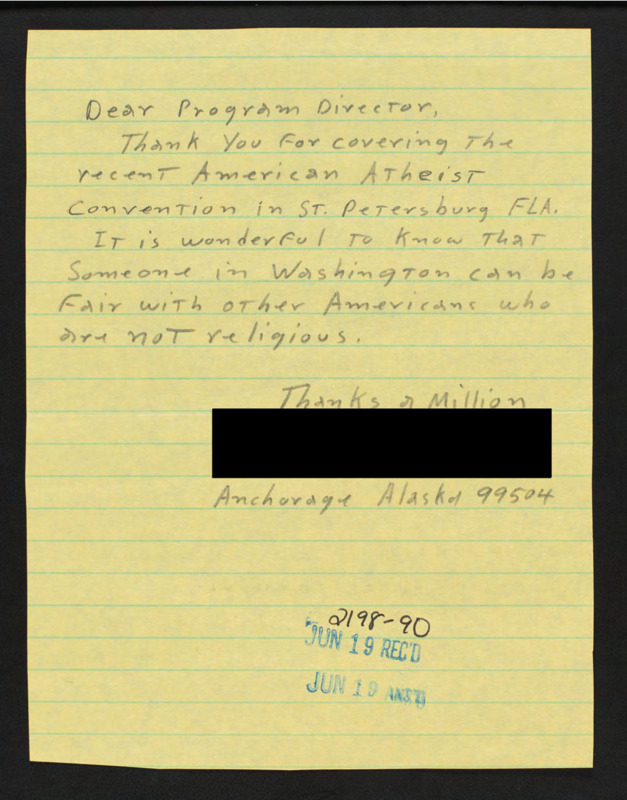 Dear Program Director,
Thank You For covering The
recent American Atheist
Convention in St. Petersburg FLA.
It is wonderful to know that
Someone in Washington can be
Fair with other Americans who
are not religious.
Thanks a Million
Anchorage Alaska 99504
2198-90
JUN 19 REC'D
JUN 19 ANS'D